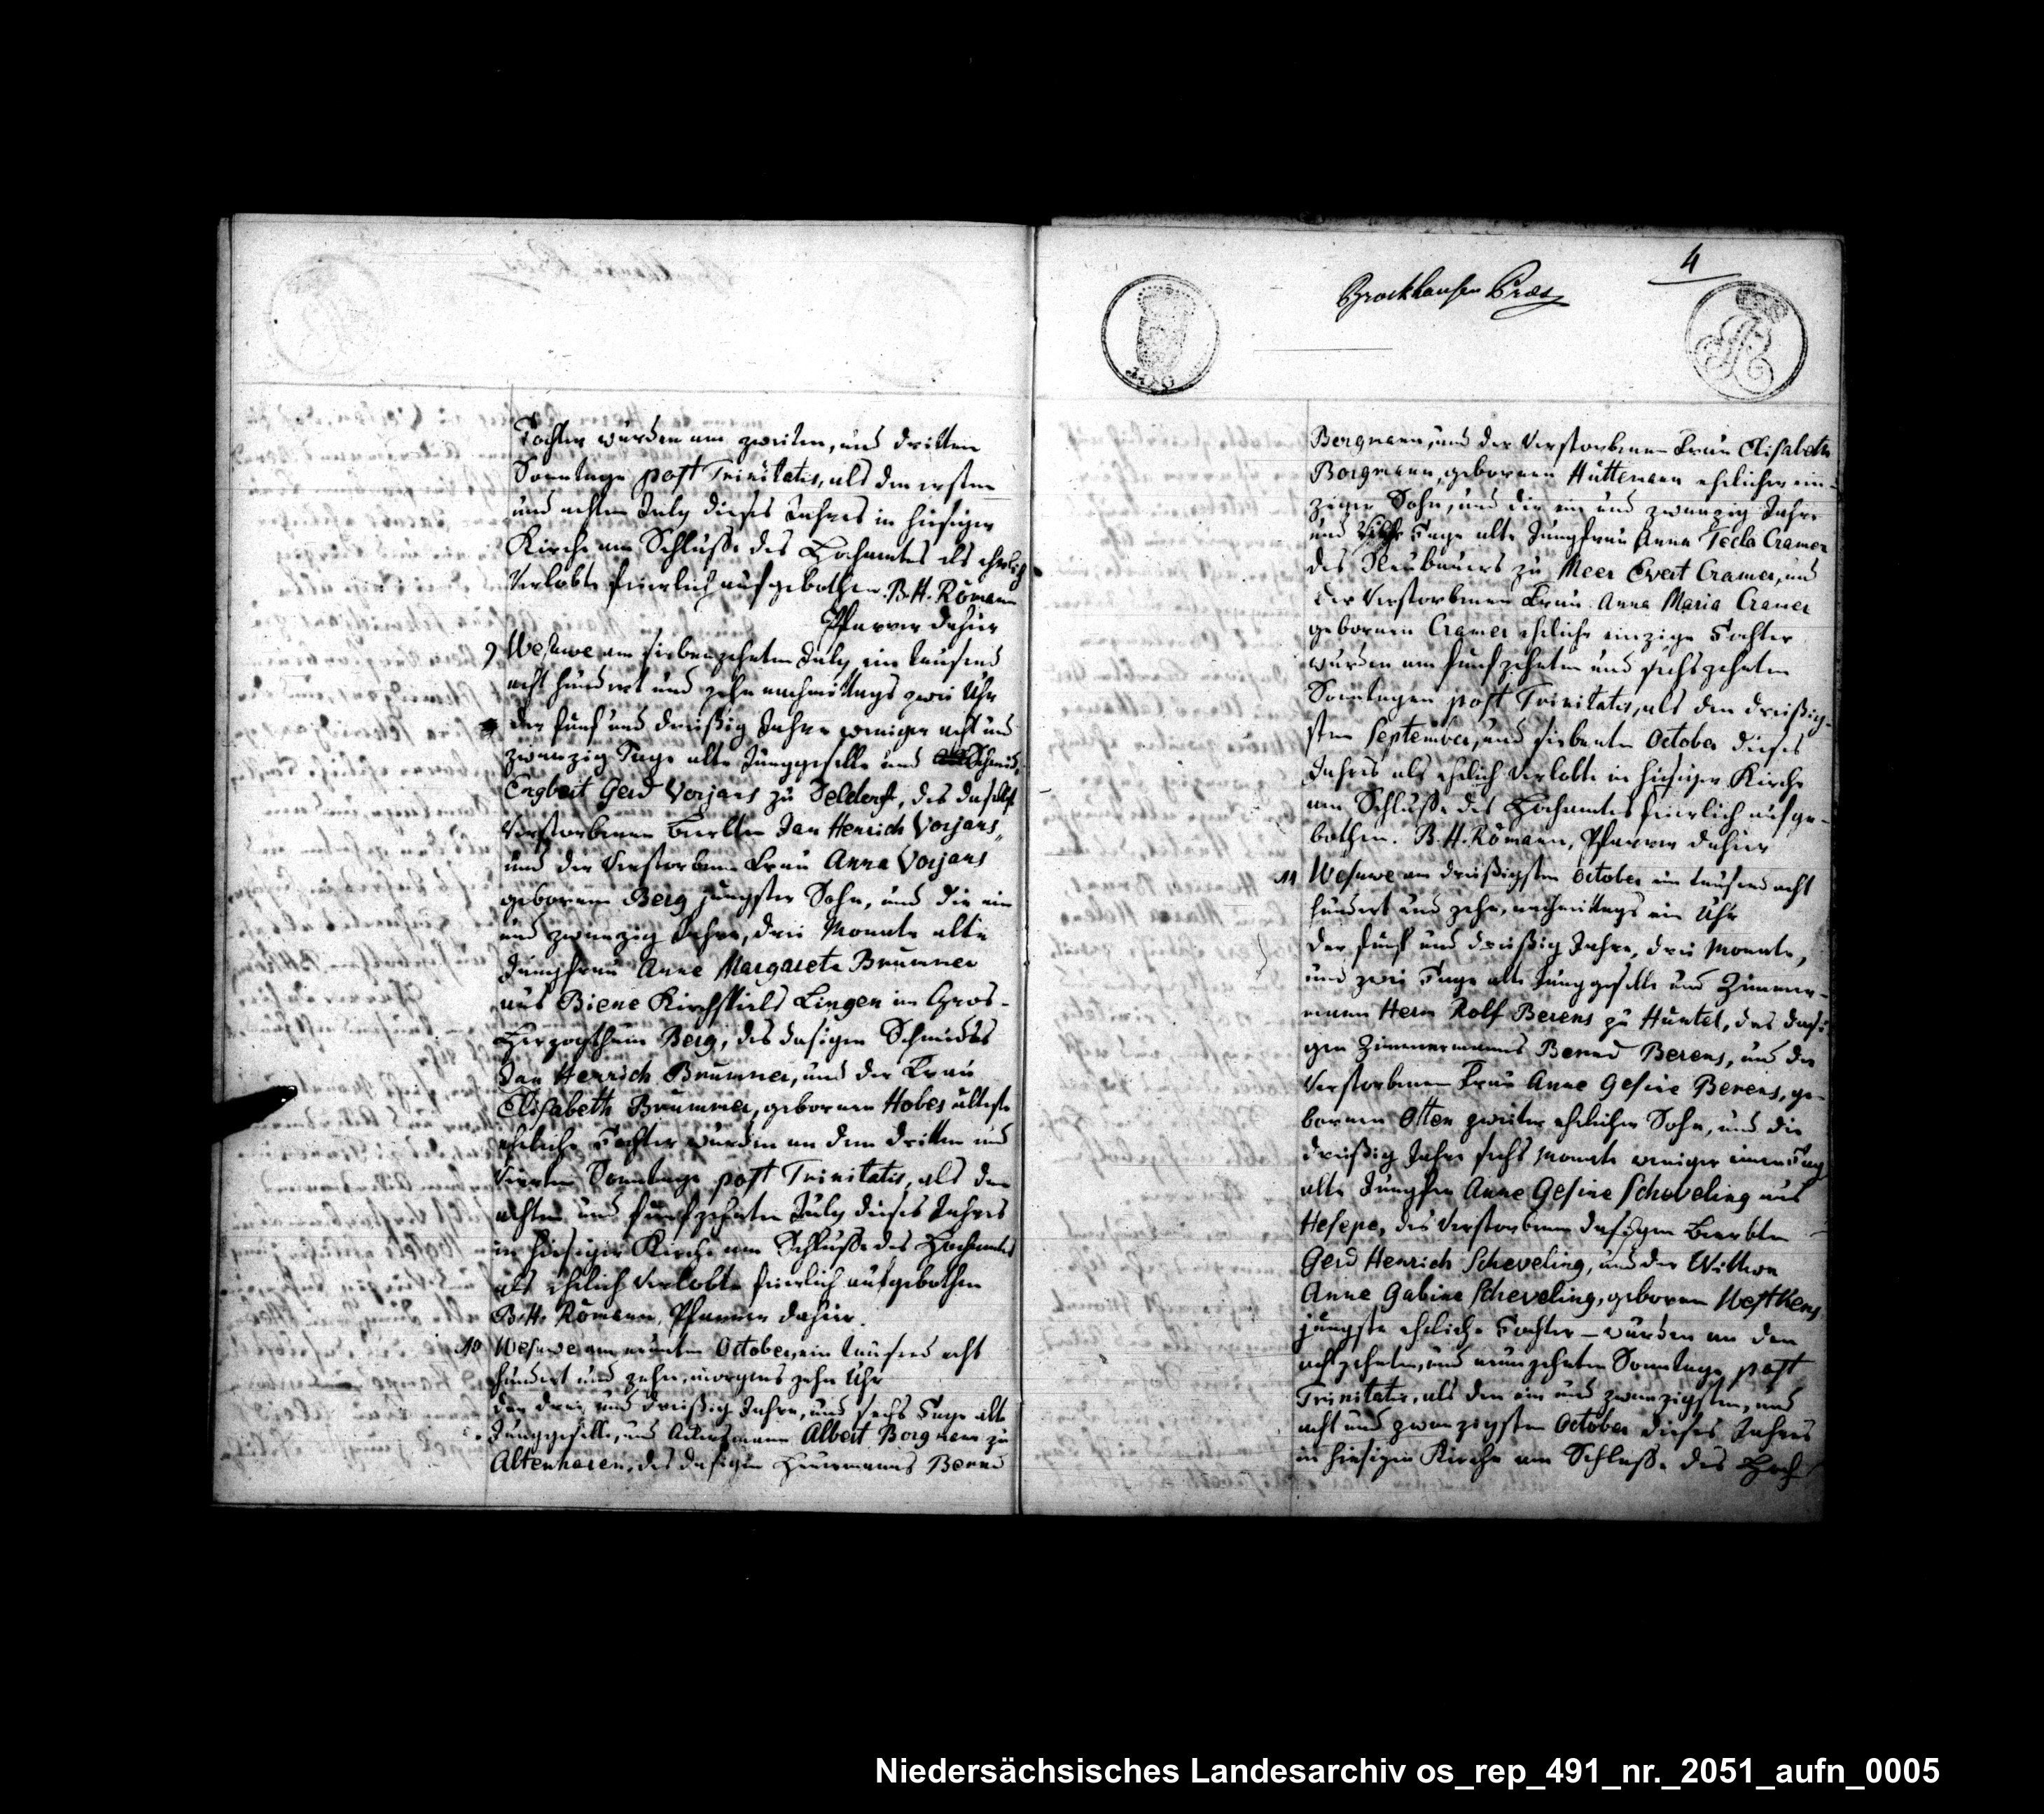 Tochter wurden am zweiten, und dritten
Sonntage post Trinitatis, als den ersten
und achten July dieses Jahres in hiesiger
Kirche am Schlusse des Hochamtes als ehelich
Verlobte feierlich aufgebothen. B. H. Römann
Pfarrer dahier
9 Wesuwe am siebenzehnten July ein tausend
acht hundert und zehn nachmittags zwei Uhr
der fünf und dreißig Jahre weniger acht und
zwanzig Tage alte Junggeselle und Schmid,
Engbert Gerd Vorjans zu Deldorf, des daselbst
Verstorbenen Beerbten Jan Henrich Vorjans,
und der Verstorbenen Frau Anna Vorjans
gebornen Berg jüngster Sohn, und die ein
und zwanzig Jahre, drei Monate alte
Jungfrau Anne Margareta Brummer
aus Biene Kirchspiels Lingen im Gros-
Herzogthum Berg, des dasigen Schmides
Jan Henrich Brummer, und der Frau
Elisabeth Brummer, gebornen Hobes älteste
eheliche Tochter wurden an dem dritten und
vierten Sonntage post Trinitatis, als den
achten und funfzehnten July dieses Jahres
in hiesiger Kirche am Schlusse des Hochamtes
als ehelich Verlobte feierlich aufgebothen
B. H. Römann, Pfarrer dahier.
10 Wesuwe am neunten October, ein tausend acht
hundert und zehn, morgens zehn Uhr
der drei und dreißig Jahre, und sechs Tage alte
Junggeselle, und Ackersmann Albert Borgmann zu
Altenharen, des dasigen Heuermanns Bernd
4
Brockhausen Præs
Bergmann, und der Verstorbenen Frau Elisabeth
Borgmann, gebornen Hüttemann ehelicher ein-
ziger Sohn, und die ein und zwanzig Jahre
und Tage alte Jungfrau Anna Tecla Cramer
des Neubauers zu Meer Evert Cramer, und
der Verstorbenen Frau Anna Maria Cramer
gebornen Cramer eheliche einzige Tochter
wurden am funfzehnten und sechszehnten
Sonntagen post Trinitatis, als den dreißig-
sten September, und siebenten October dieses
Jahres als ehelich Verlobte in hiesiger Kirche
am Schlusse des Hochamtes feierlich aufge-
bothen. B. H. Römann, Pfarrer dahier
11 Wesuwe am dreißigsten October ein tausend acht
hundert und zehn, nachmittags ein Uhr
der fünf und dreißig Jahre, drei Monate,
und zwei Tage alte Junggeselle und Zimmer-
mann Herm Rolf Berens zu Huntel, des dasi-
gen Zimmermanns Bernd Berens, und der
Verstorbenen Frau Anne Gesine Berens, ge-
bornen Otten zweiter ehelicher Sohn, und die
dreißig Jahre sechs Monate weniger einen Tag
alte Jungfer Anne Gesine Scheveling aus
Hesepe, des Verstorbenen dasigen Beerbten
Gerd Henrich Scheveling, und der Wittwe
Anne Gabine Scheveling, gebornen Westkens
jüngste eheliche Tochter – wurden an dem
achtzehnten, und neunzehnten Sonntage post
Trinitatis, als den ein und zwanzigsten, und
acht und zwanzigsten October dieses Jahres
in hiesiger Kirche am Schlusse des Hoch
Niedersächsisches Landesarchiv os_rep_491_nr._2051_aufn_0005